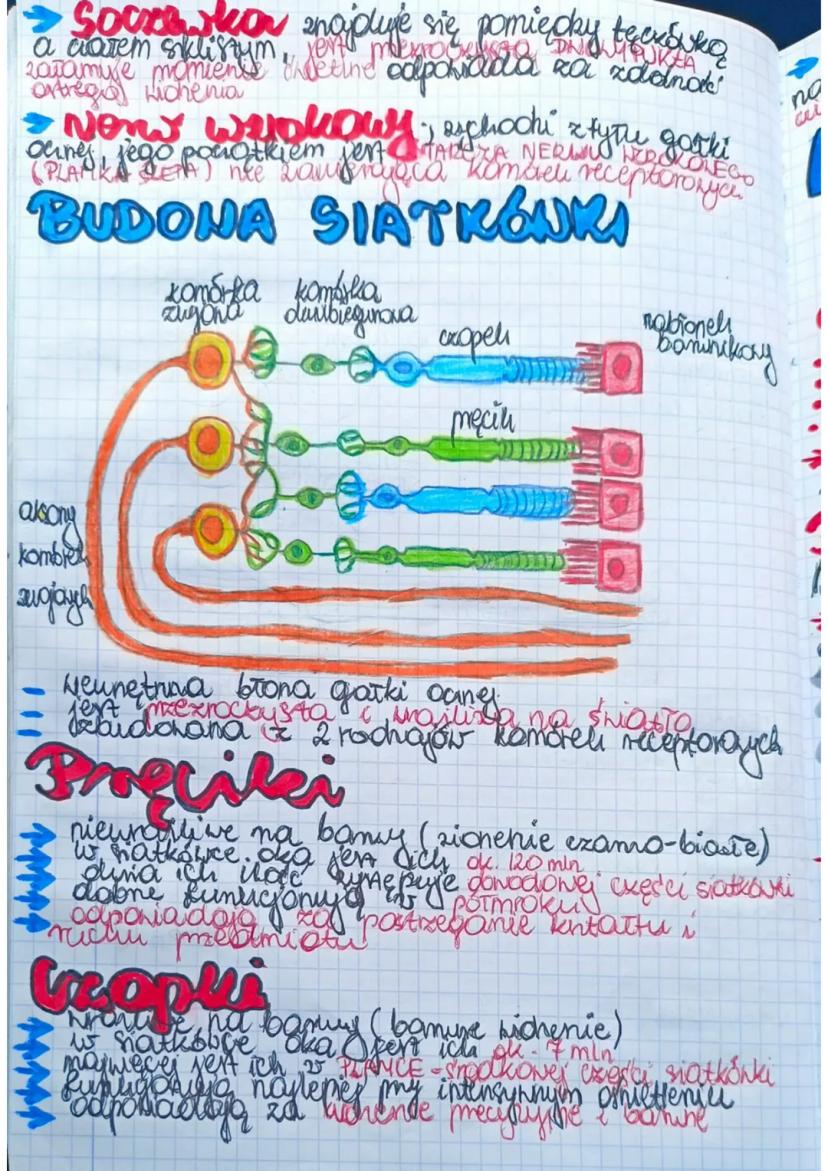 Soczewka znajduje się pomiędzy tęczówką
a ciałem sklistym, jest
załamuje promienie świetlne odpowiada za zdolność
ostrego widzenia
Nerw wzrokowy; wychodzi z tyłu gałki
ocznej, jego początkiem jest TARCZA NERWU WZROKOWEGO
(PLAMKA ŚLEPA) nie zawierająca komórek receptorowych
BUDOWA SIATKÓWKI
komórka zwojowa
komórka dwubiegunowa
czopek
nabłonek barwnikowy
pręcik
aksony
komórek
zwojowych
wewnętrzna błona gałki ocznej
jest przezroczysta i wrażliwa na światło
zbudowana z 2 rodzajów komórek receptorowych
Pręciki
niewrażliwe na barwy (widzenie czarno-białe)
w siatkówce oka jest ich ok. 120 mln
duża ich ilość występuje obwodowej części siatkówki
dobrze funkcjonują w półmroku
odpowiadają za postrzeganie kształtu i
ruchu przedmiotu
Czopki
wrażliwe na barwy (barwne widzenie)
w siatkówce oka jest ich ok. 7 mln
najwięcej jest ich w PLAMCE - środkowej części siatkówki
funkcjonują najlepiej przy intensywnym oświetleniu
odpowiadają za widzenie precyzyjne i barwne